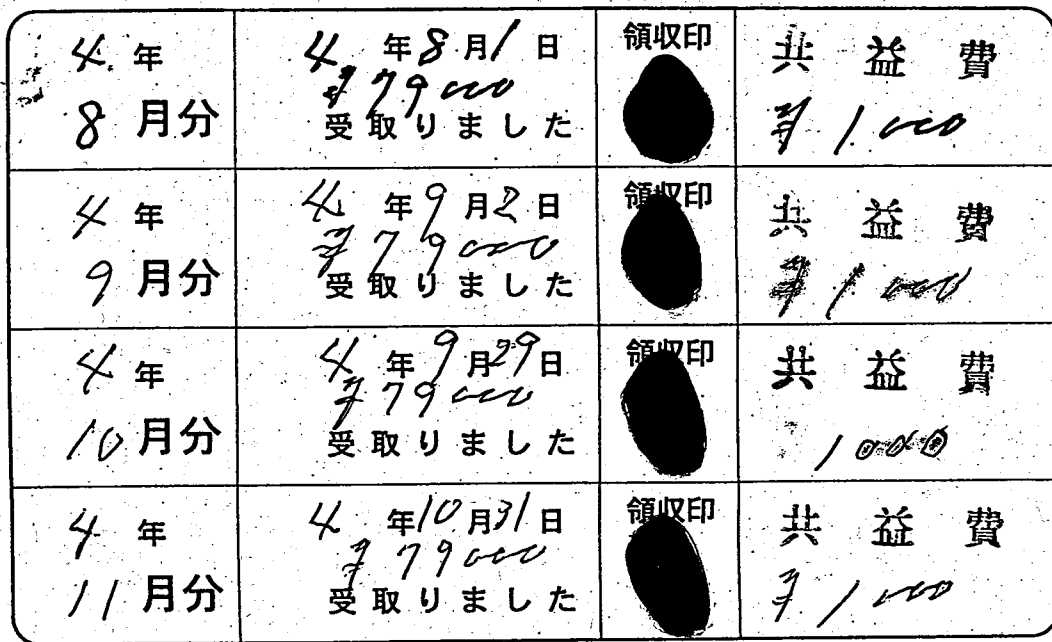 4年
8月分
4年8月1日
¥79000
受取りました
領収印
共益費
¥1000
4年
9月分
4年9月2日
¥79000
受取りました
領収印
共益費
¥1000
4年
10月分
4年9月29日
¥79000
受取りました
領収印
共益費
1000
4年
11月分
4年10月31日
¥79000
受取りました
領収印
共益費
¥1000